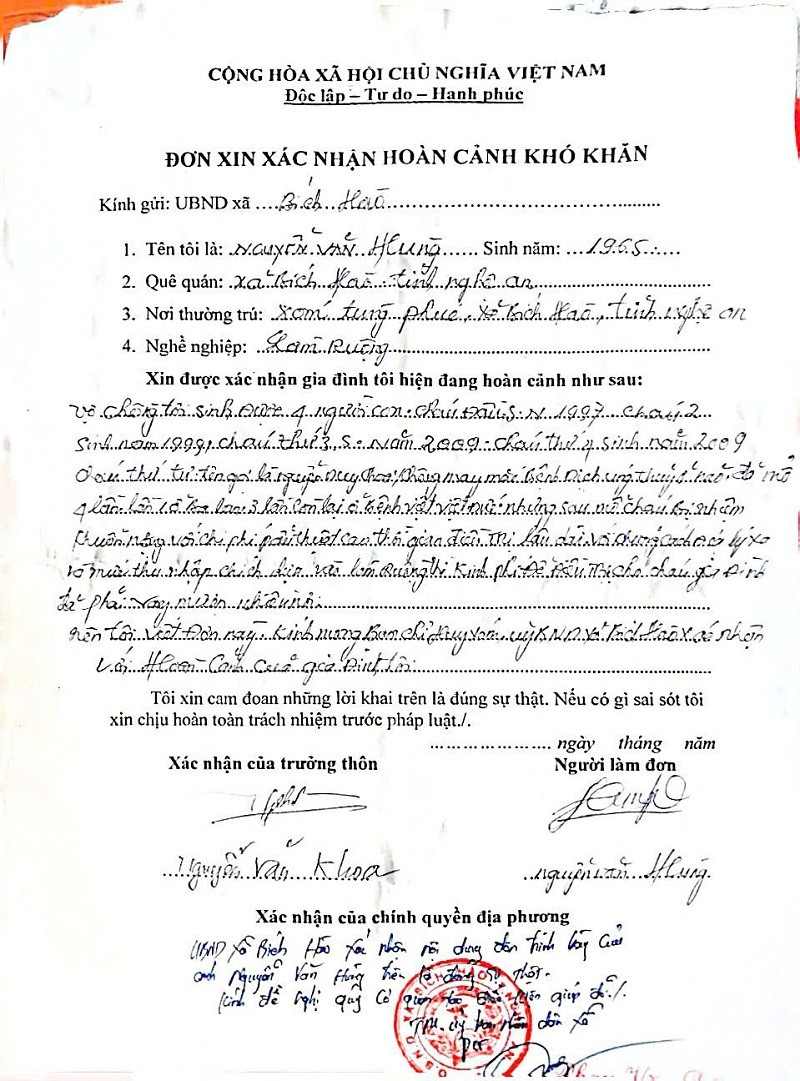 CỘNG HÒA XÃ HỘI CHỦ NGHĨA VIỆT NAM
Độc lập – Tự do – Hạnh phúc
ĐƠN XIN XÁC NHẬN HOÀN CẢNH KHÓ KHĂN
Kính gửi: UBND xã .... Bích Hào
1. Tên tôi là: Nguyễn Văn Hùng ...... Sinh năm: ... 1965
2. Quê quán: xã Bích Hào tỉnh nghệ an
3. Nơi thường trú: xóm phúc, xã Bích Hào, tỉnh nghệ an
4. Nghề nghiệp: Làm Ruộng
Xin được xác nhận gia đình tôi hiện đang hoàn cảnh như sau:
Vợ chồng tôi sinh Được 4 người con. cháu Đầu S.N 1997 cháu 2
sinh năm 1999, cháu thứ 3 S. Năm 2009. cháu thứ 4 sinh năm 2009
cháu thứ tư tên gọi là nguyễn Duy không may mắc Bệnh
4 lần lần còn lại ở bệnh viện nhưng sau mổ cháu Bị nhiễm
khuẩn nặng với chi phí cao thời gian điều trị lâu dài
thu nhập Ruộng kinh phí Để Điều trị cho cháu gia Đình
đã phải vay mượn nhiều
nên tôi viết Đơn này. kính mong Ban xã Bích Hào xác nhận
Với Hoàn Cảnh Của gia Đình tôi
Tôi xin cam đoan những lời khai trên là đúng sự thật. Nếu có gì sai sót tôi
xin chịu hoàn toàn trách nhiệm trước pháp luật./.
..................... ngày tháng năm
Xác nhận của trưởng thôn Người làm đơn
Nguyễn Văn Khoa nguyễn văn Hùng
Xác nhận của chính quyền địa phương
UBND xã Bích Hào xác nhận nội dung đơn trình bày của
anh Nguyễn Văn Hùng trên là đúng sự thật.
Kính đề nghị quý cơ quan giúp đỡ./.
TM. ủy ban nhân dân xã